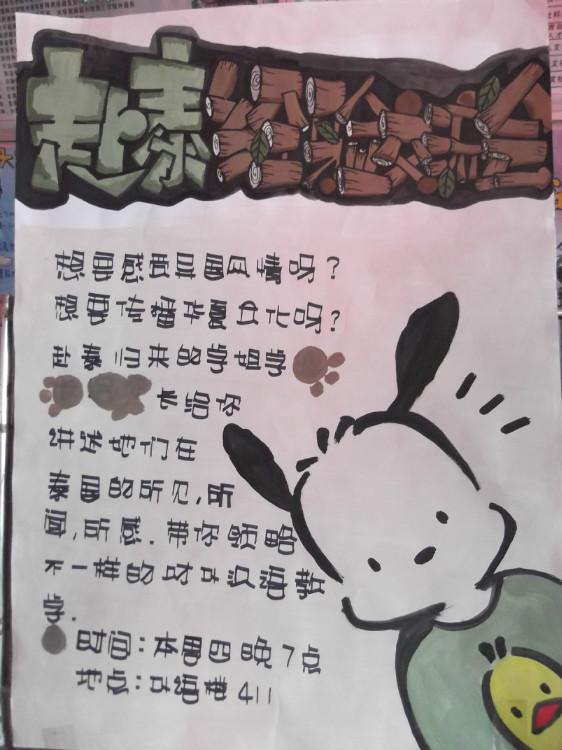 赴泰经验交流会
想要感受异国风情呀？
想要传播华夏文化呀？
赴泰归来的学姐学
长给你
讲述她们在
泰国的所见,所
闻,所感.带你领略
不一样的对外汉语教
学.
时间:本周四晚7点
地点:外语楼411